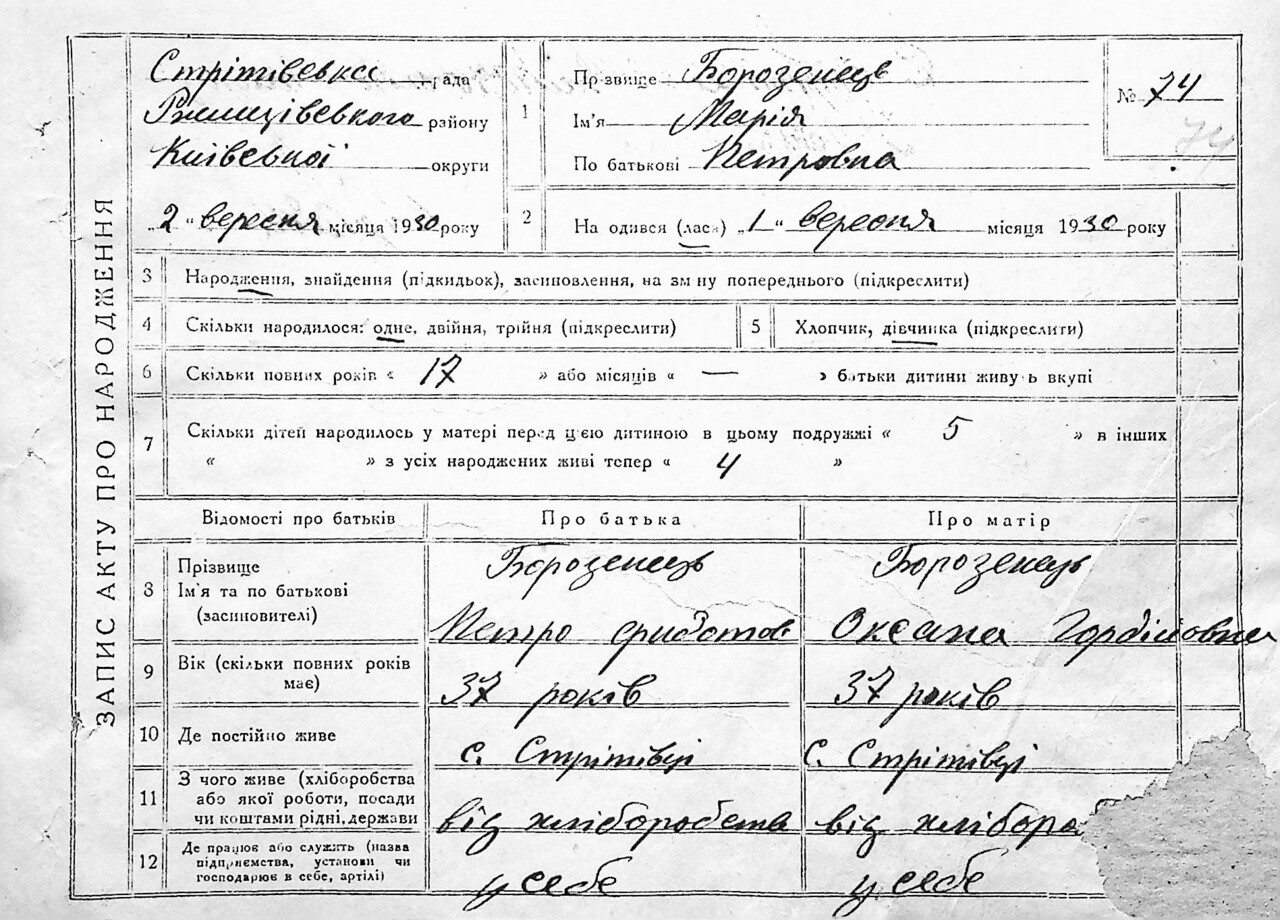 ЗАПИС АКТУ ПРО НАРОДЖЕННЯ
Стрітівська рада
Ржищівського району
Київської округи
„2 “ вересня місяця 1930 року
1
Прізвище Борозенець
Ім'я Марія
По батькові Петровна
№ 74
74
2
На одився (лася) „1 “ вересня місяця 1930 року
3 Народження, знайдення (підкидьок), засиновлення, на зм ну попереднього (підкреслити)
4 Скільки народилося: одне, двійня, трійня (підкреслити)
5 Хлопчик, дівчинка (підкреслити)
6 Скільки повних років « 17 » або місяців « — » батьки дитини живу ь вкупі
7 Скільки дітей народилось у матері перед цією дитиною в цьому подружжі « 5 » в інших
« » з усіх народжених живі тепер « 4 »
Відомості про батьків Про батька Про матір
8 Прізвище
Ім'я та по батькові
(засиновителі)
Борозенець
Петро
Борозенець
Оксана Гордійовна
9 Вік (скільки повних років
має)
37 років
37 років
10 Де постійно живе
с. Стрітівці
с. Стрітівці
11 З чого живе (хліборобства
або якої роботи, посади
чи коштами рідні, держави
від хліборобства
від хлібора
12 Де працює або служить (назва
підприємства, установи чи
господарює в себе, артілі)
у себе
у себе